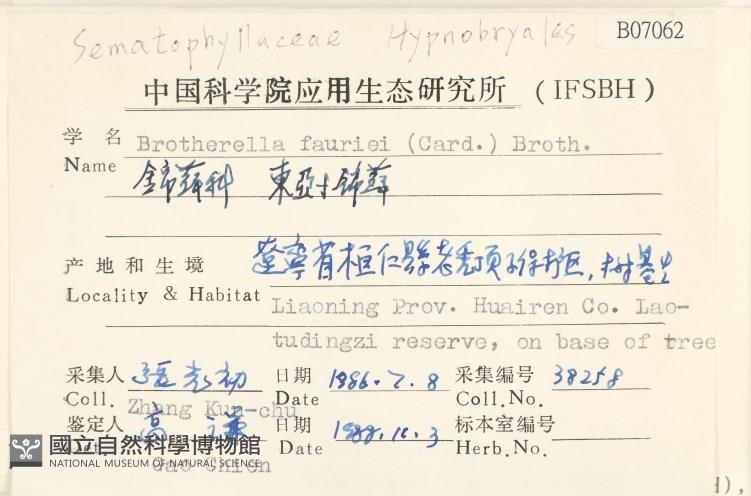 Sematophyllaceae Hypnobryales B07062
中国科学院应用生态研究所 (IFSBH)
学名 Brotherella fauriei (Card.) Broth.
Name 錦蘚科 東亞小錦蘚
产地和生境 遼寧省桓仁縣老禿頂子保护区,树基生
Locality & Habitat Liaoning Prov. Huairen Co. Lao-
tudingzi reserve, on base of tree
采集人 日期 1986.7.8 采集编号 38258
Coll. Zhang Kun-chu Date Coll.No.
鉴定人 高谦 日期 标本室编号
Gao Chien Date Herb.No.
國立自然科學博物館
NATIONAL MUSEUM OF NATURAL SCIENCE
),